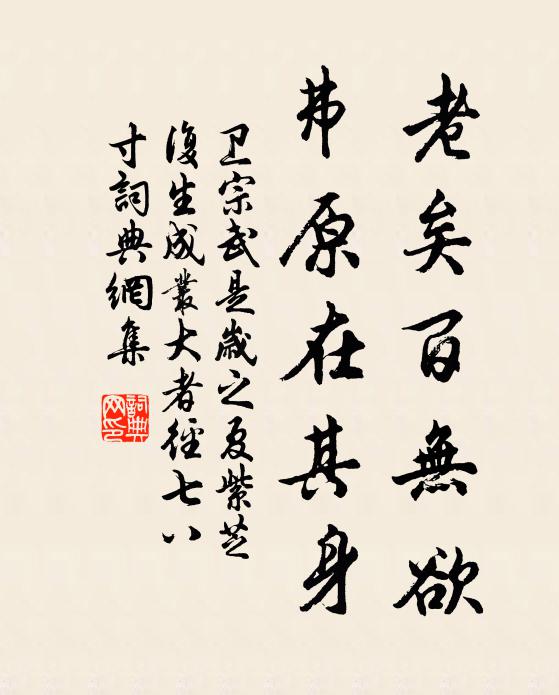 老矣百無欲
弗原在其身
卫宗武是歲之夏紫芝
復生成叢大者徑七八
寸詞典網集
詞典
网印